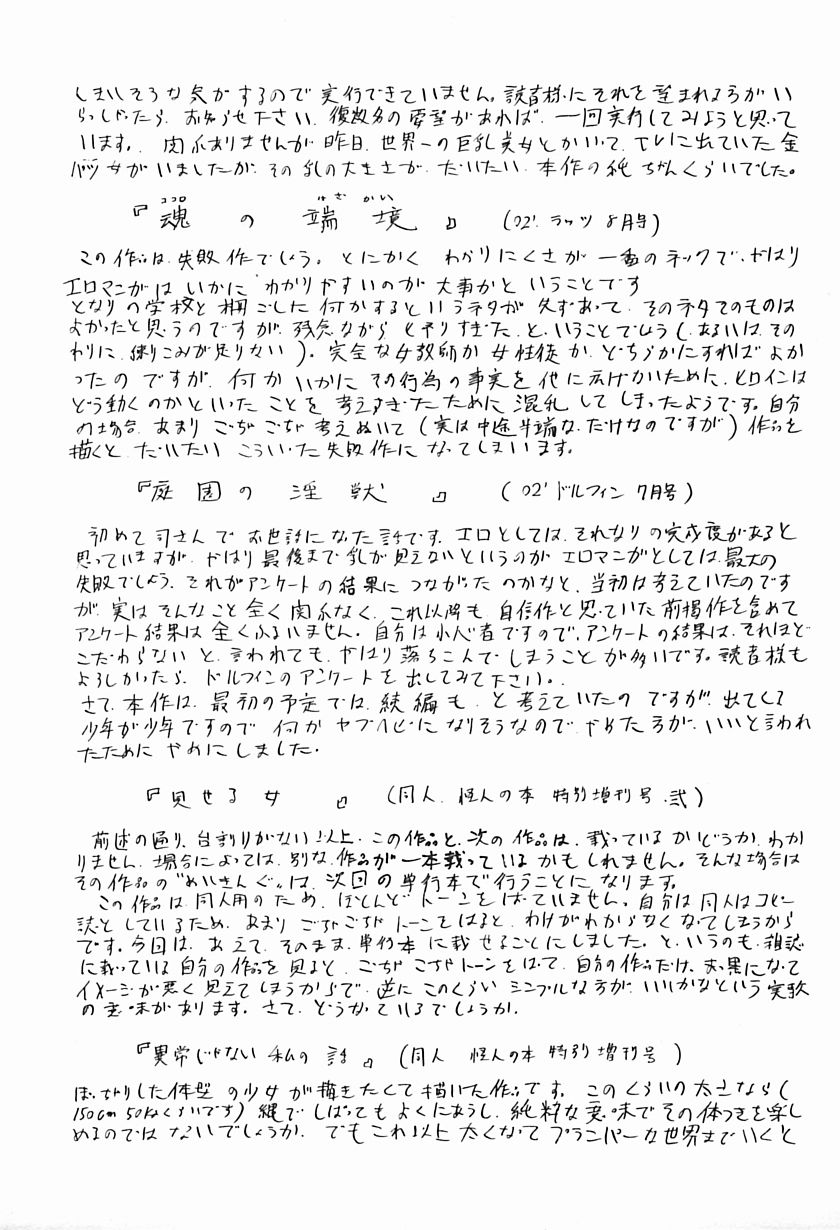 しまいそうな気がするので実行できていません。読者様にそれを望まれる方がい
らっしゃったら、お知らせ下さい。複数名の要望があれば、一回実行してみようと思って
います。関係ありませんが昨日、世界一の巨乳美女とかいって、TVに出ていた金
パツ女がいましたが、その乳の大きさが、だいたい、本作の純ちゃんくらいでした。
『魂の端境』 (02' ラッツ 8月号)
ココロ はざかい
この作品は、失敗作でしょう。とにかく わかりにくさが一番のネックで、やはり
エロマンガは いかに わかりやすいのが 大事かと いうことです
となりの学校と柵ごしに何かするというネタが 先ずあって、そのネタそのものは
よかったと思うのですが、残念ながら とやりすぎた、と、いうことでしょう(あるいは、その
わりに、練りこみが足りない)。完全な女教師か 女性徒か、どちらかにすれば よか
ったの ですが、何か いかに その行為の事実を 他に広げないために、ヒロインは
どう動くのかといった ことを 考えすぎたために 混乱 して しまったようです。自分
の場合、あまり ごちゃごちゃ 考えぬいて(実は中途半端な、だけなのですが)作品を
描くと、だいたい こういった失敗作に なってしまいます。
『庭園の淫獣』 (02' ドルフィン 7月号)
初めて司さんで お世話になった話です。エロとしては、それなりの完成度があると
思っていますが、やはり最後まで乳が見えないというのが エロマンガとしては、最大の
失敗でしょう。それがアンケートの結果に つながったのかなと、当初は考えていたのです
が、実は そんなこと全く関係なく、これ以降も、自信作と思っていた前掲作を含めて
アンケート結果は 全くふるいません。自分は小心者ですので、アンケートの結果は、それほど
こだわらない と、言われても、やはり落ちこんでしまうこと が多いです。読者様も
よろしかったら、ドルフィンのアンケートを出してみて下さい。
さて、本作は、最初の予定では、続編も、と考えていたの ですが、出てくる
少年が少年ですので 何か ヤブヘビに なりそうなので、やめた方が、いいと言われ
たために やめに しました。
『見せる女』 (同人、怪人の本 特別増刊号 弐)
前述の通り、台割りがない以上、この作品と、次の作品は、載っているかどうか、わか
りません。場合によっては、別な作品が一本載っているかもしれません。そんな場合は
その作品の"めいきんぐ"は、次回の単行本で行うことに なります。
この作品は、同人用のため、ほとんどトーンを はっていません。自分は同人はコピー
誌としているため、あまり ごちゃごちゃ トーンをはると、わけがわからなくなってしまうから
です。今回は、あえて、そのまま、単行本に載せることにしました。と、いうのも、雑誌
に載っている自分の作品を見ると、ごちゃごちゃトーンをはって、自分の作品だけ、まっ黒になって
イメージが悪く見えてしまうからで、逆に このくらい シンプルな方が いいかなという実験
の意味があります。さて、どうなっているでしょうか。
『異常じゃない私の話』 (同人 怪人の本 特別増刊号)
ぽっちゃりした体型 の少女が描きたくて描いた作品です。このくらいの太さなら(
150cm 50kgくらいです)縄でしばっても よくにあうし、純粋な意味でその体つきを楽し
めるのでは ないでしょうか。でもこれ以上 太くなって プランパーな世界までいくと